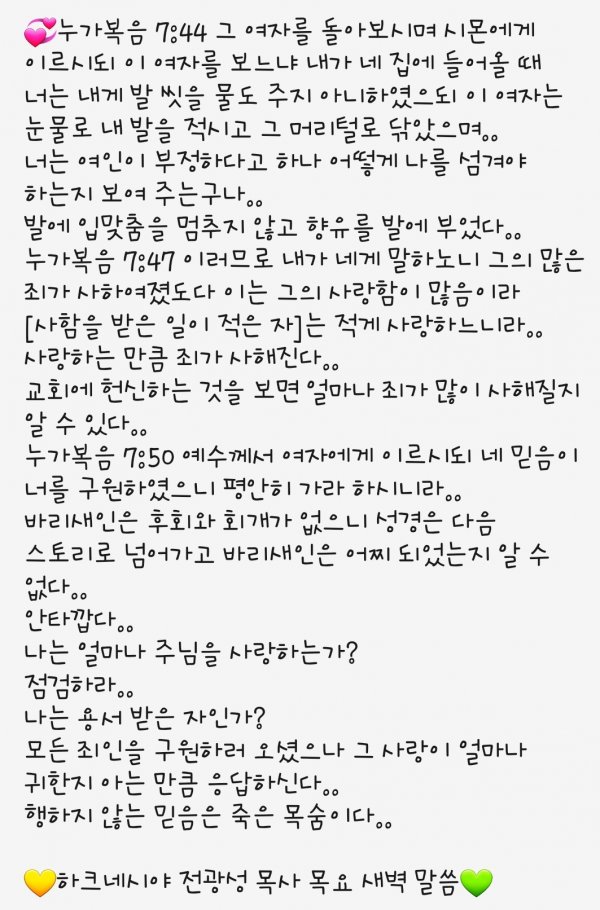 💞누가복음 7:44 그 여자를 돌아보시며 시몬에게
이르시되 이 여자를 보느냐 내가 네 집에 들어올 때
너는 내게 발 씻을 물도 주지 아니하였으되 이 여자는
눈물로 내 발을 적시고 그 머리털로 닦았으며..
너는 여인이 부정하다고 하나 어떻게 나를 섬겨야
하는지 보여 주는구나..
발에 입맞춤을 멈추지 않고 향유를 발에 부었다..
누가복음 7:47 이러므로 내가 네게 말하노니 그의 많은
죄가 사하여졌도다 이는 그의 사랑함이 많음이라
[사함을 받은 일이 적은 자]는 적게 사랑하느니라..
사랑하는 만큼 죄가 사해진다..
교회에 헌신하는 것을 보면 얼마나 죄가 많이 사해질지
알 수 있다..
누가복음 7:50 예수께서 여자에게 이르시되 네 믿음이
너를 구원하였으니 평안히 가라 하시니라..
바리새인은 후회와 회개가 없으니 성경은 다음
스토리로 넘어가고 바리새인은 어찌 되었는지 알 수
없다..
안타깝다..
나는 얼마나 주님을 사랑하는가?
점검하라..
나는 용서 받은 자인가?
모든 죄인을 구원하러 오셨으나 그 사랑이 얼마나
귀한지 아는 만큼 응답하신다..
행하지 않는 믿음은 죽은 목숨이다..
💛하크네시야 전광성 목사 목요 새벽 말씀💚